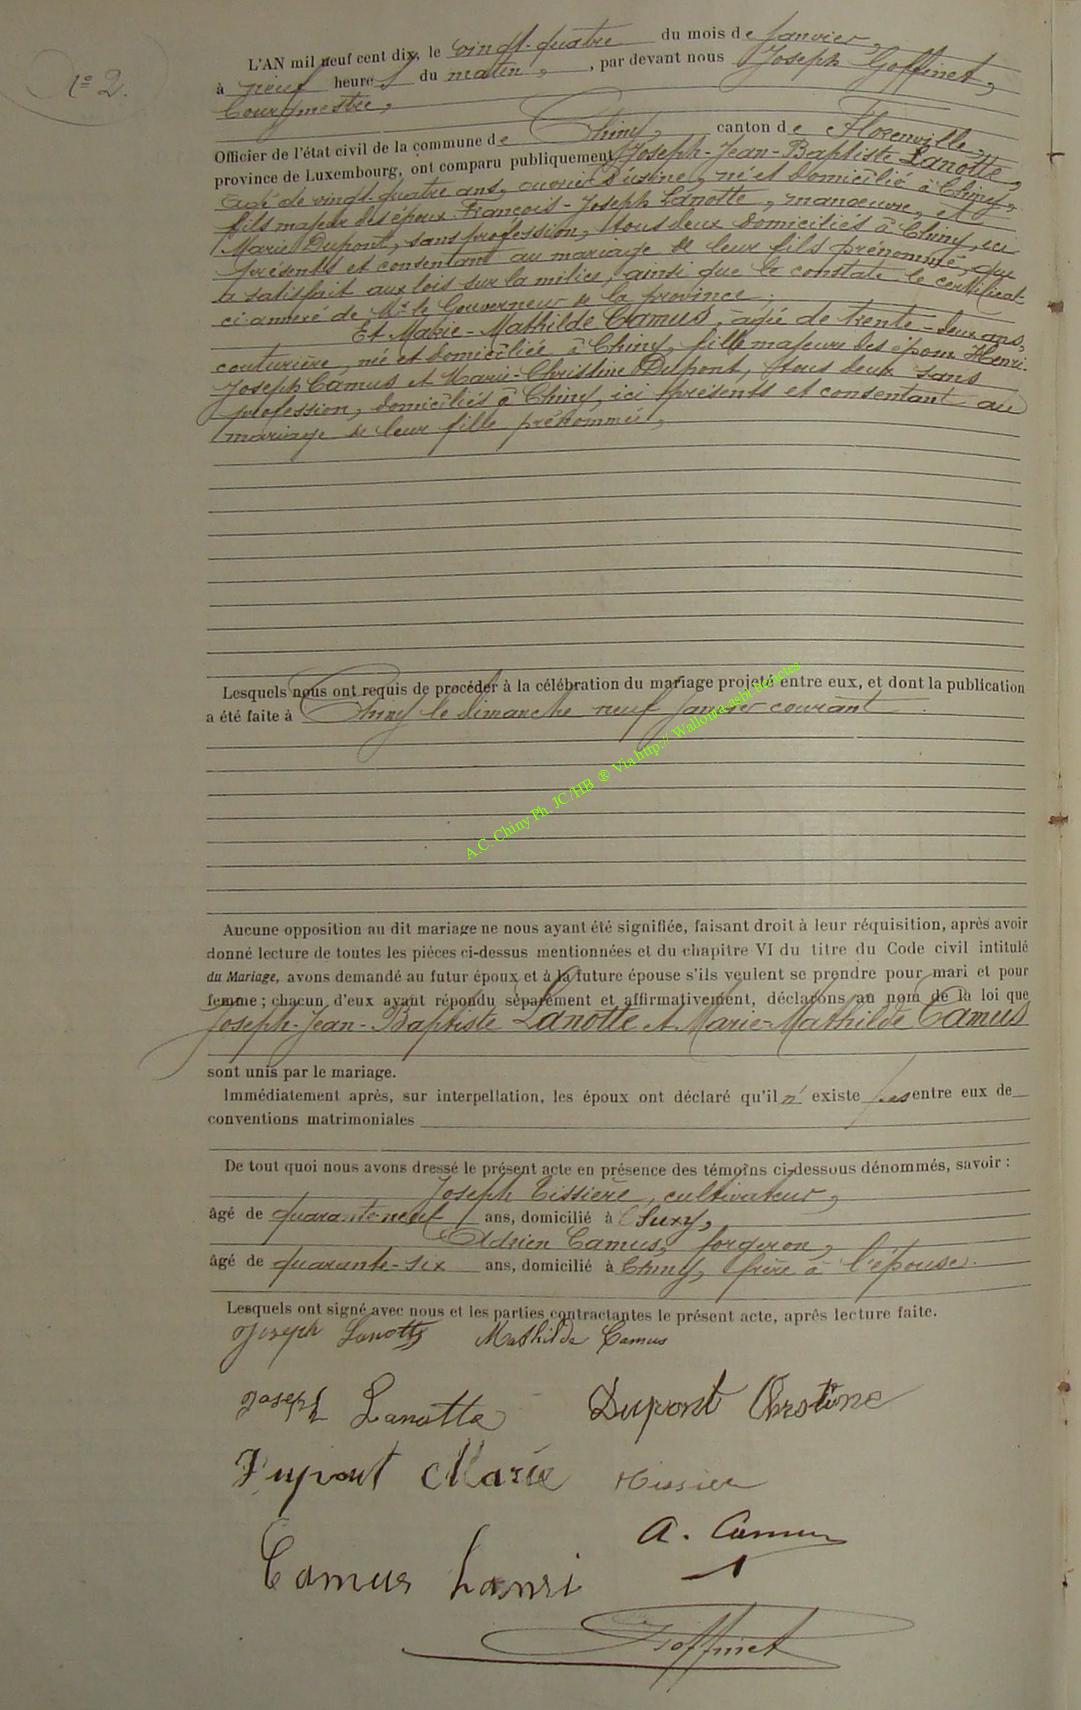 Nº 2.
L'AN mil neuf cent dix, le vingt-quatre du mois de Janvier,
à neuf heures du matin, , par devant nous Joseph Goffinet,
bourgmestre,
Officier de l'état civil de la commune de Chiny, canton de Florenville,
province de Luxembourg, ont comparu publiquement Joseph-Jean-Baptiste Lanotte,
agé de vingt-quatre ans, ouvrier d'usine, né et domicilié à Chiny,
fils majeur des époux François-Joseph Lanotte, manœuvre, et
Marie Dupont, sans profession, tous deux domiciliés à Chiny, ici
présents et consentant au mariage de leur fils prénommé, qui
a satisfait aux lois sur la milice, ainsi que le constate le certificat
ci-annexé de Mr le Gouverneur de la province;
Et Marie-Mathilde Camus, agée de trente-deux ans,
couturière, né et domiciliée à Chiny, fille majeure des époux Henri-
Joseph Camus et Marie-Christine Dupont, tous deux sans
profession, domiciliés à Chiny, ici présents et consentant au
mariage de leur fille prénommée,
Lesquels nous ont requis de procéder à la célébration du mariage projeté entre eux, et dont la publication
a été faite à Chiny le dimanche neuf Janvier courant.
A.C. Chiny Ph. JC/HB ® Via http:// Wallonia-asbl
Aucune opposition au dit mariage ne nous ayant été signifiée, faisant droit à leur réquisition, après avoir
donné lecture de toutes les pièces ci-dessus mentionnées et du chapitre VI du titre du Code civil intitulé
du Mariage, avons demandé au futur époux et à la future épouse s'ils veulent se prendre pour mari et pour
femme ; chacun d'eux ayant répondu séparément et affirmativement, déclarons au nom de la loi que
Joseph-Jean-Baptiste Lanotte et Marie-Mathilde Camus
sont unis par le mariage.
Immédiatement après, sur interpellation, les époux ont déclaré qu'il n' existe pas entre eux de
conventions matrimoniales
De tout quoi nous avons dressé le présent acte en présence des témoins ci-dessous dénommés, savoir :
Joseph Tissière, cultivateur,
âgé de quarante-neuf ans, domicilié à Suxy,
Adrien Camus, forgeron,
âgé de quarante-six ans, domicilié à Chiny, frère à l'épouse.
Lesquels ont signé avec nous et les parties contractantes le présent acte, après lecture faite.
Joseph Lanotte Mathilde Camus
Joseph Lanotte Dupont Christine
Dupont Marie Tissier
A. Camus
Camus Hanri
Goffinet